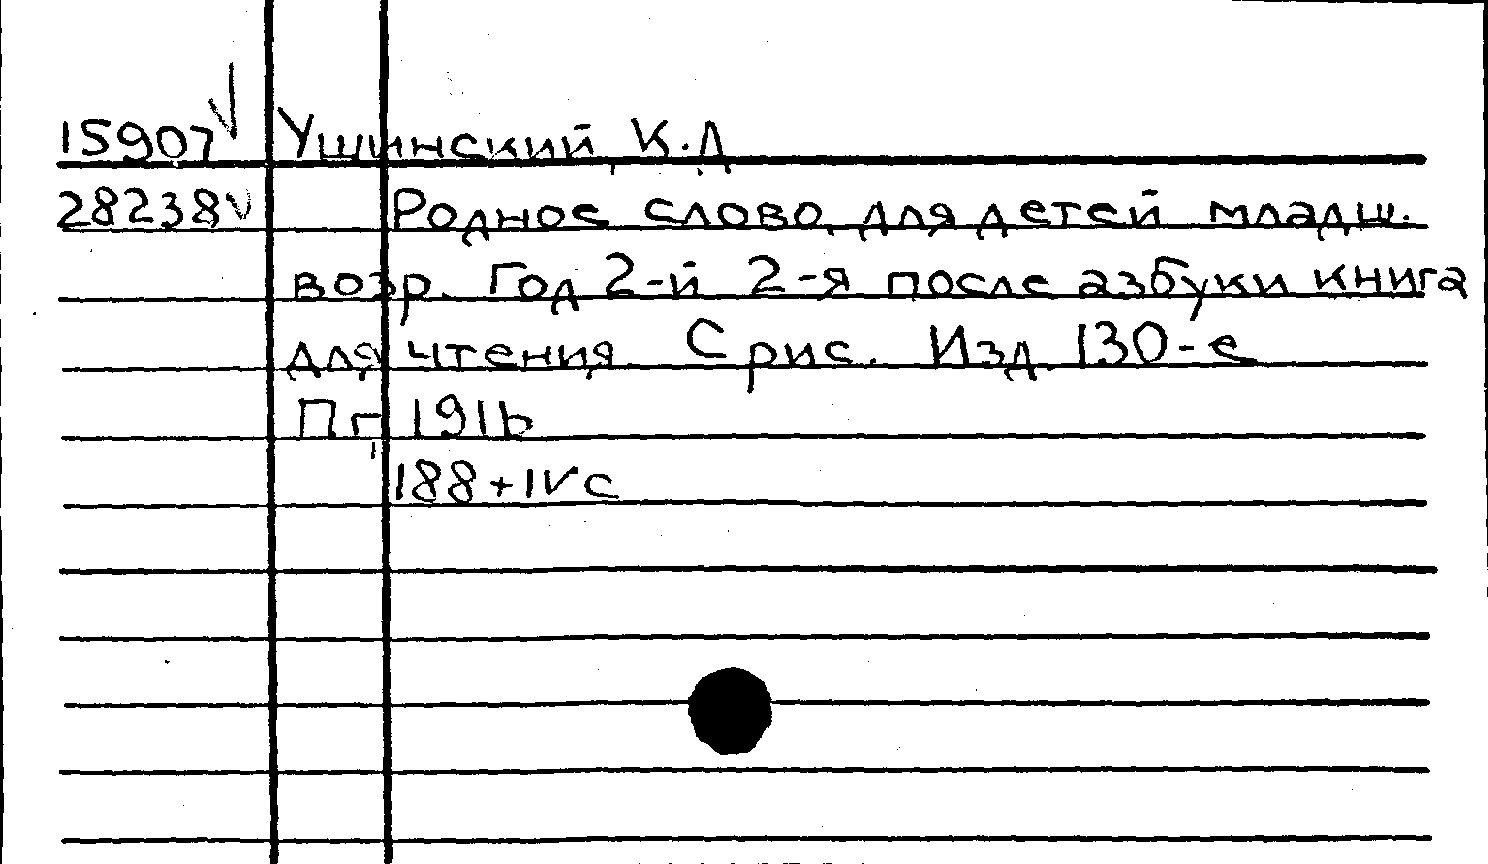 15907 √ Ушинский, К.Д.
28238 √ Родное слово, для детей младш.
возр. Год 2-й 2-я после азбуки книга
для чтения С рис. Изд. 130-е
Пг, 1916
188+IV с